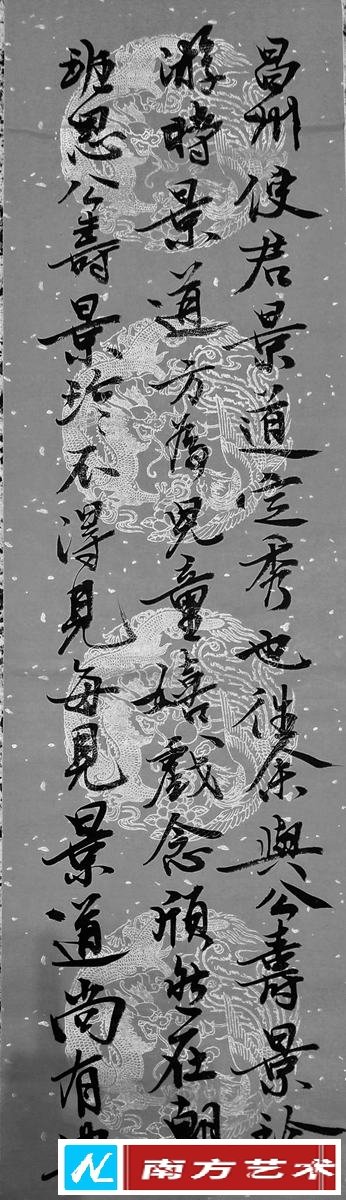 昌州使君景道宗秀也往余與公壽景珍
游時景道方為兒童嬉戲今頎然在朝
班思公壽景珍不得見每見景道尚有
南方艺术